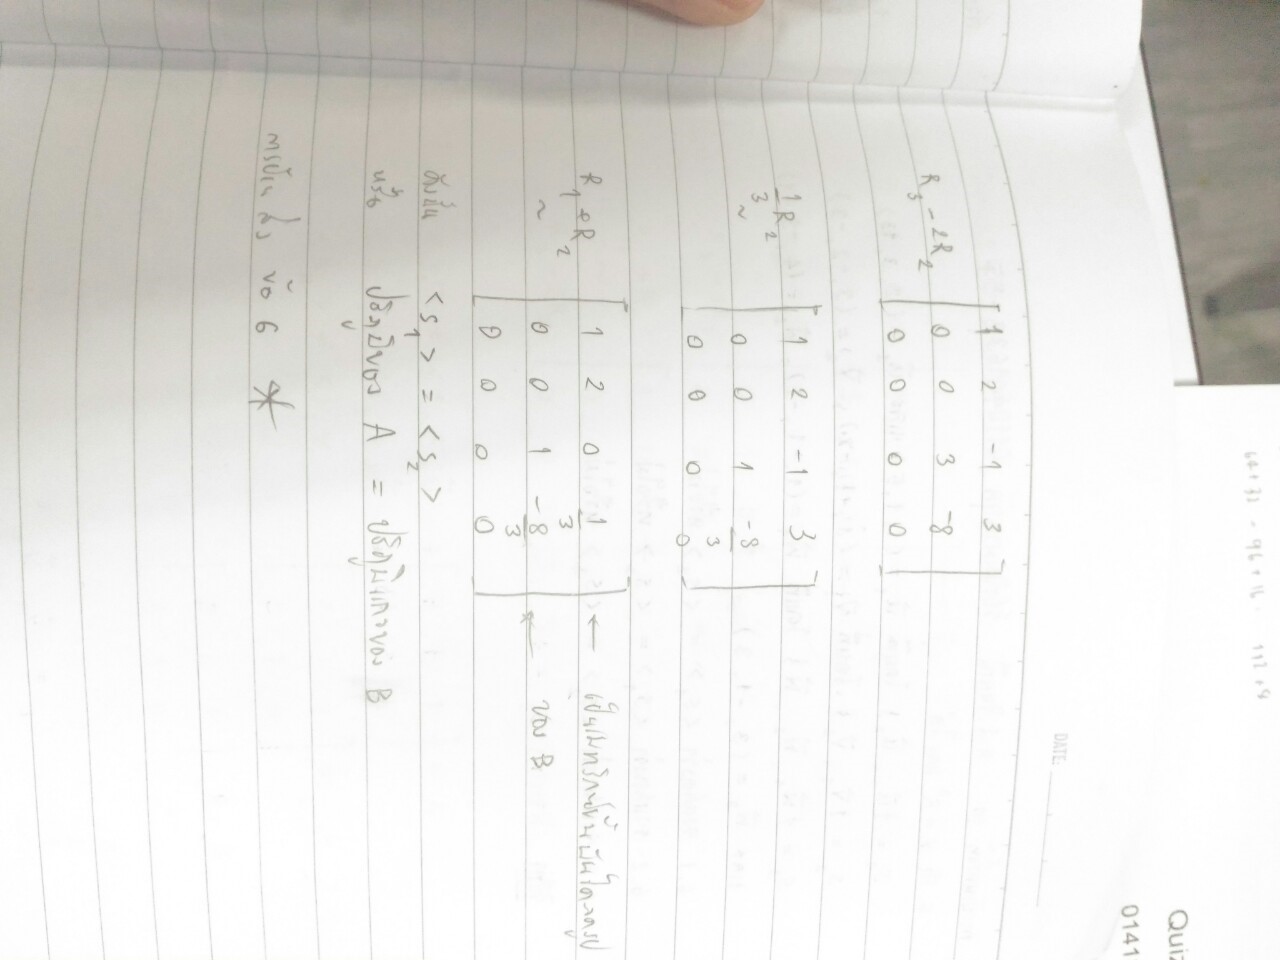 64+32 - 96+16 112+8
Quiz
0141
DATE:
1 2 -1 3
R3 - 2R2 0 0 3 -8
0 0 0 0
1/3 R2 1 2 -1 3
~ 0 0 1 -8/3
0 0 0 0
R1+R2 1 2 0 1/3 ← เป็นเมทริกซ์ขั้นบันไดลดรูป
~ 0 0 1 -8/3 ← ของ B
0 0 0 0
ดังนั้น <S1> = <S2>
หรือ ปริภูมิของ A = ปริภูมิแถวของ B
การบ้าน ส่ง ข้อ 6 *